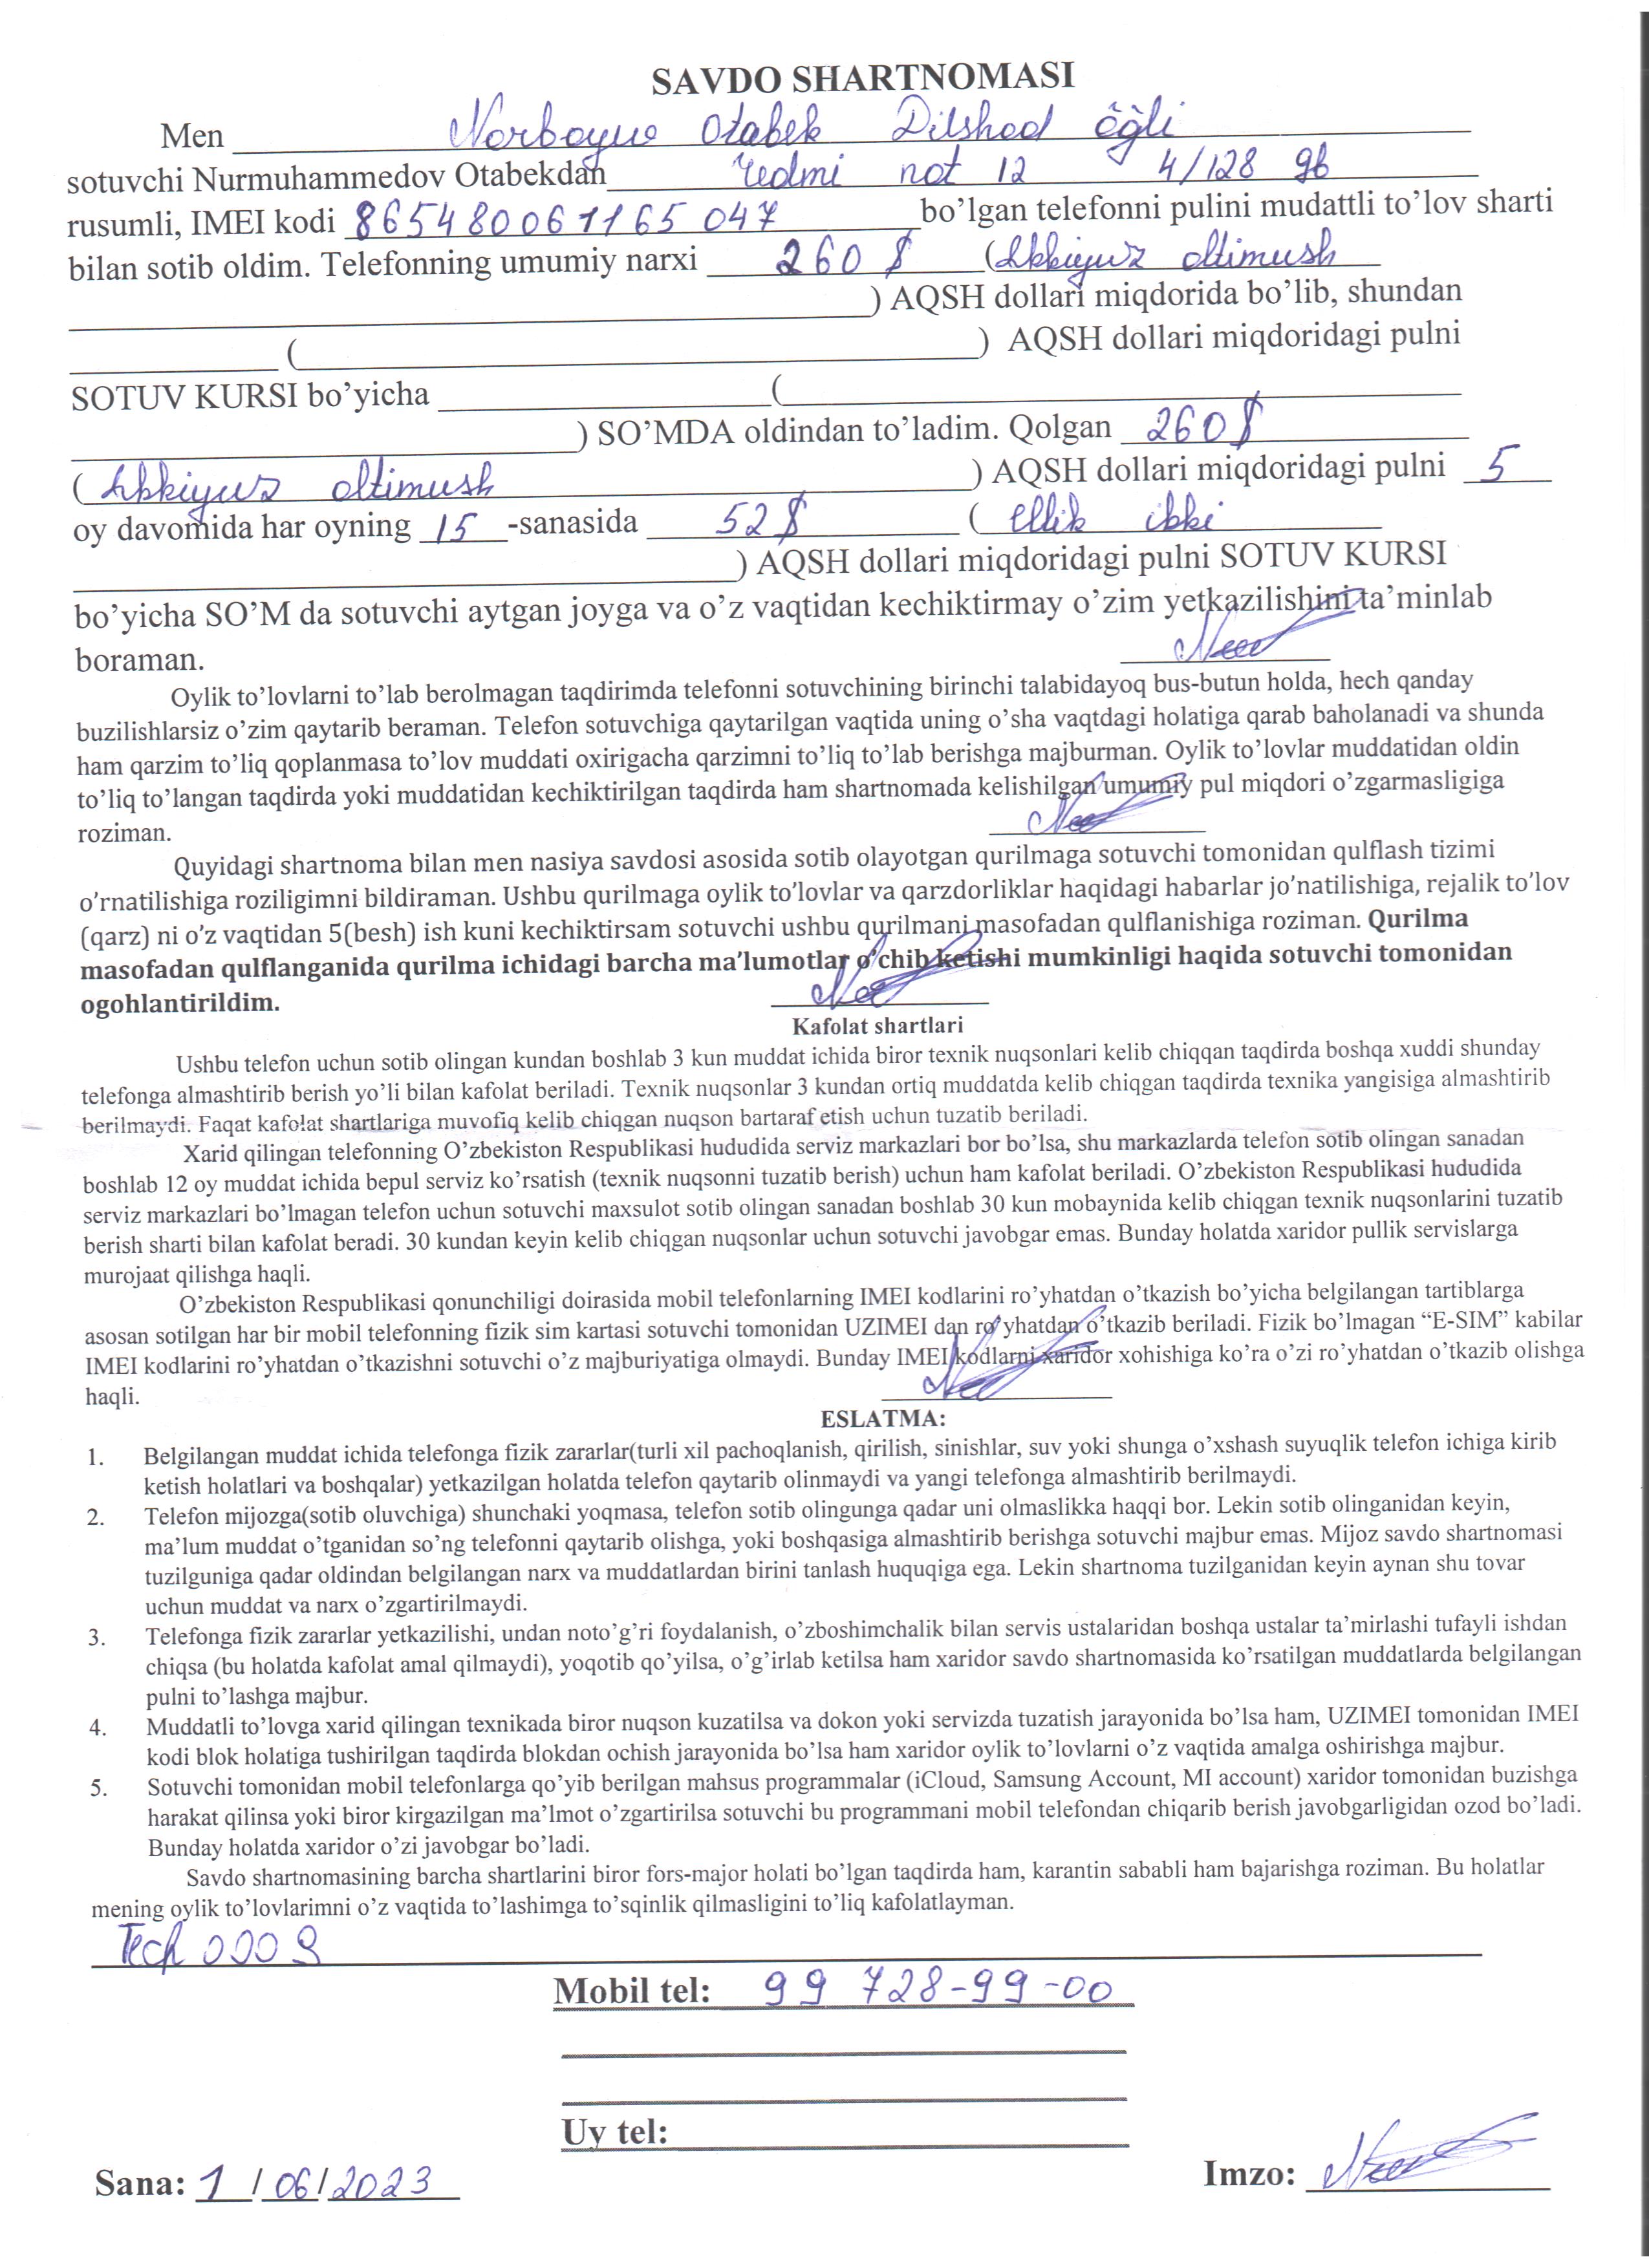 SAVDO SHARTNOMASI
Men Norboyev Otabek Dilshod o'g'li
sotuvchi Nurmuhammedov Otabekdan redmi not 12 4/128 gb
rusumli, IMEI kodi 865480061165047 bo’lgan telefonni pulini mudattli to’lov sharti
bilan sotib oldim. Telefonning umumiy narxi 260 $ (Ikkiyuz oltimush
) AQSH dollari miqdorida bo’lib, shundan
( ) AQSH dollari miqdoridagi pulni
SOTUV KURSI bo’yicha (
) SO’MDA oldindan to’ladim. Qolgan 260 $
(Ikkiyuz oltimush ) AQSH dollari miqdoridagi pulni 5
oy davomida har oyning 15 -sanasida 52 $ ( ellik ikki
) AQSH dollari miqdoridagi pulni SOTUV KURSI
bo’yicha SO’M da sotuvchi aytgan joyga va o’z vaqtidan kechiktirmay o’zim yetkazilishini ta’minlab
boraman.
Oylik to’lovlarni to’lab berolmagan taqdirimda telefonni sotuvchining birinchi talabidayoq bus-butun holda, hech qanday
buzilishlarsiz o’zim qaytarib beraman. Telefon sotuvchiga qaytarilgan vaqtida uning o’sha vaqtdagi holatiga qarab baholanadi va shunda
ham qarzim to’liq qoplanmasa to’lov muddati oxirigacha qarzimni to’liq to’lab berishga majburman. Oylik to’lovlar muddatidan oldin
to’liq to’langan taqdirda yoki muddatidan kechiktirilgan taqdirda ham shartnomada kelishilgan umumiy pul miqdori o’zgarmasligiga
roziman.
Quyidagi shartnoma bilan men nasiya savdosi asosida sotib olayotgan qurilmaga sotuvchi tomonidan qulflash tizimi
o’rnatilishiga roziligimni bildiraman. Ushbu qurilmaga oylik to’lovlar va qarzdorliklar haqidagi habarlar jo’natilishiga, rejalik to’lov
(qarz) ni o’z vaqtidan 5(besh) ish kuni kechiktirsam sotuvchi ushbu qurilmani masofadan qulflanishiga roziman. Qurilma
masofadan qulflanganida qurilma ichidagi barcha ma’lumotlar o’chib ketishi mumkinligi haqida sotuvchi tomonidan
ogohlantirildim.
Kafolat shartlari
Ushbu telefon uchun sotib olingan kundan boshlab 3 kun muddat ichida biror texnik nuqsonlari kelib chiqqan taqdirda boshqa xuddi shunday
telefonga almashtirib berish yo’li bilan kafolat beriladi. Texnik nuqsonlar 3 kundan ortiq muddatda kelib chiqgan taqdirda texnika yangisiga almashtirib
berilmaydi. Faqat kafolat shartlariga muvofiq kelib chiqgan nuqson bartaraf etish uchun tuzatib beriladi.
Xarid qilingan telefonning O’zbekiston Respublikasi hududida serviz markazlari bor bo’lsa, shu markazlarda telefon sotib olingan sanadan
boshlab 12 oy muddat ichida bepul serviz ko’rsatish (texnik nuqsonni tuzatib berish) uchun ham kafolat beriladi. O’zbekiston Respublikasi hududida
serviz markazlari bo’lmagan telefon uchun sotuvchi maxsulot sotib olingan sanadan boshlab 30 kun mobaynida kelib chiqgan texnik nuqsonlarini tuzatib
berish sharti bilan kafolat beradi. 30 kundan keyin kelib chiqgan nuqsonlar uchun sotuvchi javobgar emas. Bunday holatda xaridor pullik servislarga
murojaat qilishga haqli.
O’zbekiston Respublikasi qonunchiligi doirasida mobil telefonlarning IMEI kodlarini ro’yhatdan o’tkazish bo’yicha belgilangan tartiblarga
asosan sotilgan har bir mobil telefonning fizik sim kartasi sotuvchi tomonidan UZIMEI dan ro’yhatdan o’tkazib beriladi. Fizik bo’lmagan “E-SIM” kabilar
IMEI kodlarini ro’yhatdan o’tkazishni sotuvchi o’z majburiyatiga olmaydi. Bunday IMEI kodlarni xaridor xohishiga ko’ra o’zi ro’yhatdan o’tkazib olishga
haqli.
ESLATMA:
1. Belgilangan muddat ichida telefonga fizik zararlar(turli xil pachoqlanish, qirilish, sinishlar, suv yoki shunga o’xshash suyuqlik telefon ichiga kirib
ketish holatlari va boshqalar) yetkazilgan holatda telefon qaytarib olinmaydi va yangi telefonga almashtirib berilmaydi.
2. Telefon mijozga(sotib oluvchiga) shunchaki yoqmasa, telefon sotib olingunga qadar uni olmaslikka haqqi bor. Lekin sotib olinganidan keyin,
ma’lum muddat o’tganidan so’ng telefonni qaytarib olishga, yoki boshqasiga almashtirib berishga sotuvchi majbur emas. Mijoz savdo shartnomasi
tuzilguniga qadar oldindan belgilangan narx va muddatlardan birini tanlash huquqiga ega. Lekin shartnoma tuzilganidan keyin aynan shu tovar
uchun muddat va narx o’zgartirilmaydi.
3. Telefonga fizik zararlar yetkazilishi, undan noto’g’ri foydalanish, o’zboshimchalik bilan servis ustalaridan boshqa ustalar ta’mirlashi tufayli ishdan
chiqsa (bu holatda kafolat amal qilmaydi), yoqotib qo’yilsa, o’g’irlab ketilsa ham xaridor savdo shartnomasida ko’rsatilgan muddatlarda belgilangan
pulni to’lashga majbur.
4. Muddatli to’lovga xarid qilingan texnikada biror nuqson kuzatilsa va dokon yoki servizda tuzatish jarayonida bo’lsa ham, UZIMEI tomonidan IMEI
kodi blok holatiga tushirilgan taqdirda blokdan ochish jarayonida bo’lsa ham xaridor oylik to’lovlarni o’z vaqtida amalga oshirishga majbur.
5. Sotuvchi tomonidan mobil telefonlarga qo’yib berilgan mahsus programmalar (iCloud, Samsung Account, MI account) xaridor tomonidan buzishga
harakat qilinsa yoki biror kirgazilgan ma’lmot o’zgartirilsa sotuvchi bu programmani mobil telefondan chiqarib berish javobgarligidan ozod bo’ladi.
Bunday holatda xaridor o’zi javobgar bo’ladi.
Savdo shartnomasining barcha shartlarini biror fors-major holati bo’lgan taqdirda ham, karantin sababli ham bajarishga roziman. Bu holatlar
mening oylik to’lovlarimni o’z vaqtida to’lashimga to’sqinlik qilmasligini to’liq kafolatlayman.
Tech OOO
Mobil tel: 99 728-99-00
Uy tel:
Sana: 1/06/2023 Imzo: